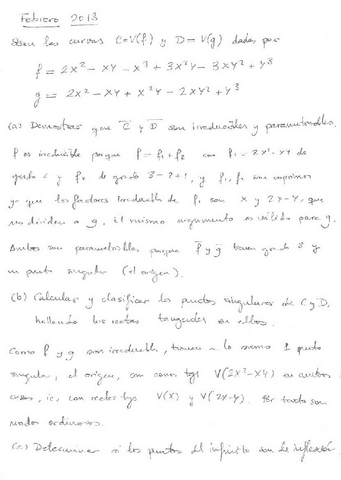 Febrero 2013
Sean las curvas C=V(f) y D=V(g) dadas por
f = 2x² - xy - x³ + 3x²y - 3xy² + y³
g = 2x² - xy + x²y - 2xy² + y³
(a) Demostrar que C̅ y D̅ son irreducibles y parametrizables.
f es irreducible porque f = f₁+f₂ con f₁ = 2x²-xy de
grado 2 y f₂ de grado 3=2+1, y f₁, f₂ son coprimos
ya que los factores irreducibles de f₁ son x y 2x-y, que
no dividen a g. El mismo argumento es válido para g.
Ambas son parametrizables porque f y g tienen grado 3 y
un punto singular (el origen).
(b) Calcular y clasificar los puntos singulares de C y D,
hallando las rectas tangentes en ellos.
Como f y g son irreducibles, tienen a lo sumo 1 punto
singular, el origen, con conos tgs V(2x²-xy) en ambos
casos, ie, con rectas tgs V(x) y V(2x-y). Por tanto son
nodos ordinarios.
(c) Determinar si los puntos del infinito son de inflexión.